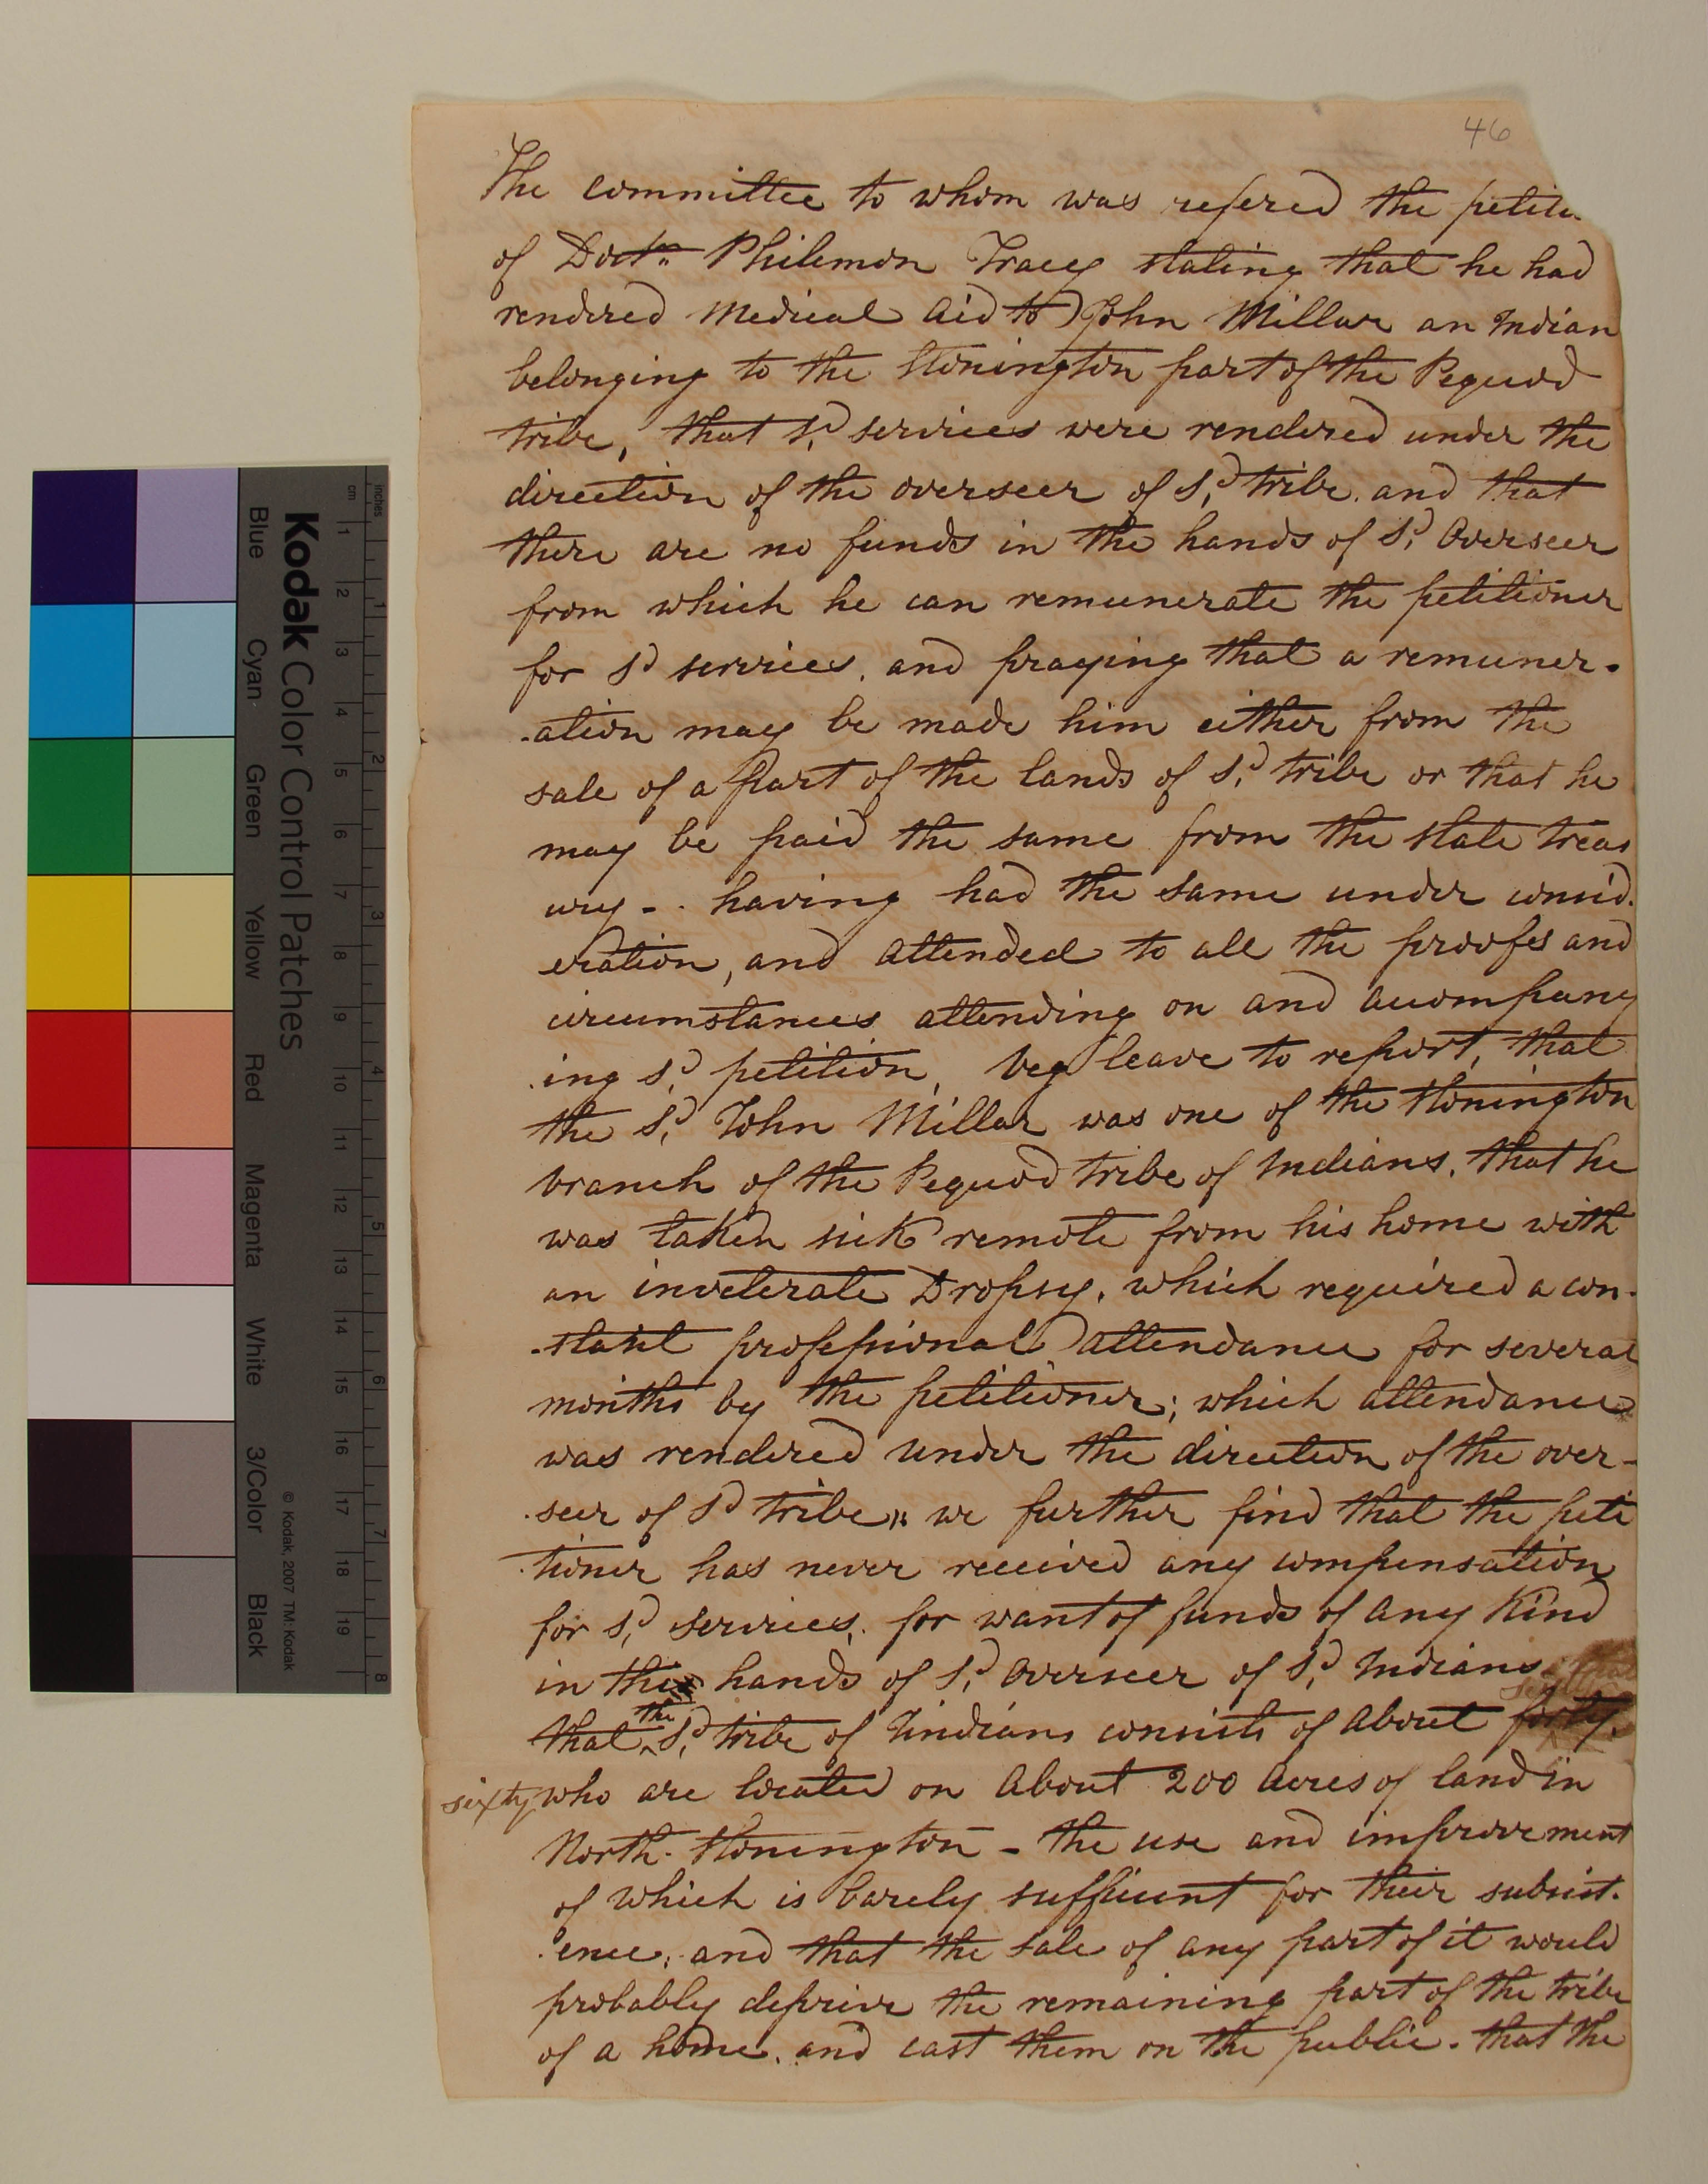 46
The committee to whom was refered the petiti
of Doctr. Philemon Tracy stating that he had
rendered Medical Aid to John Millar an Indian
belonging to the Stonington part of the Pequod
tribe, that sd. services were rendered under the
direction of the overseer of sd. tribe. and that
there are no funds in the hands of sd. Overseer
from which he can remunerate the petitioner
for sd services. and praying that a remuner-
-ation may be made him either from the
sale of a part of the lands of sd. tribe or that he
may be paid the same from the state treas
ury - . having had the same under consid-
eration, and attended to all the proofes and
circumstances attending on and accompany
ing sd. petition, beg leave to report, that
the sd. John Millar was one of the Stonington
branch of the Pequod tribe of Indians. that he
was taken sick remote from his home with
an inveterate Dropsy. which required a con-
-stant professional attendance for several
months by the petitioner; which attendance
was rendered under the direction of the over-
-seer of sd tribe. we further find that the peti
-tioner has never received any compensation
for sd. services. for want of funds of any kind
in the hands of sd. Overseer of sd. Indians
that the sd. tribe of Indians consists of about forty.
sixty who are located on about 200 acres of land in
North-Stonington - the use and improvement
of which is barely sufficient for their subsist-
-ence; and that the sale of any part of it would
probably deprive the remaining part of the tribe
of a home. and cast them on the public. that the
inches
cm
1 2 3 4 5 6 7 8 9 10 11 12 13 14 15 16 17 18 19
1 2 3 4 5 6 7 8
Kodak Color Control Patches
© Kodak, 2007 TM: Kodak
Blue Cyan Green Yellow Red Magenta White 3/Color Black